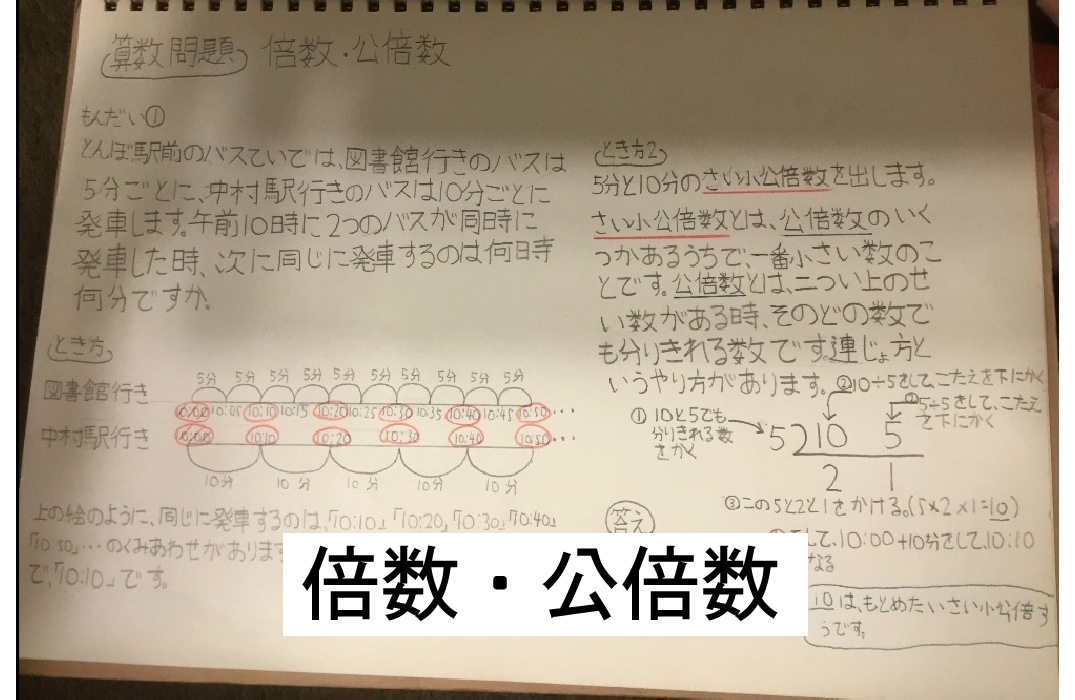 算数問題 倍数・公倍数
もんだい①
とんぼ駅前のバスていでは、図書館行きのバスは
5分ごとに、中村駅行きのバスは10分ごとに
発車します。午前10時に2つのバスが同時に
発車した時、次に同じに発車するのは何時
何分ですか。
とき方
5分 5分 5分 5分 5分 5分 5分 5分 5分 5分
図書館行き 10:00 10:05 10:10 10:15 10:20 10:25 10:30 10:35 10:40 10:45 10:50…
中村駅行き 10:00 10:10 10:20 10:30 10:40 10:50…
10分 10分 10分 10分 10分
上の絵のように、同じに発車するのは、「10:10」「10:20」「10:30」「10:40」
「10:50」…のくみあわせがあります
で、「10:10」です。
とき方2
5分と10分のさい小公倍数を出します。
さい小公倍数とは、公倍数のいく
つかあるうちで、一番小さい数のこ
とです。公倍数とは、二つい上のせ
い数がある時、そのどの数で
も分りきれる数です。連じょ方と
いうやり方があります。
②10÷5をして、こたえを下にかく
②5÷5をして、こたえ
を下にかく
①10と5でも
分りきれる数
をかく
5 10 5
2 1
③この5と2と1をかける。(5×2×1=10)
答え
して、10:00+10分をして、10:10
なる
10は、もとめたいさい小公倍す
うです。
倍数・公倍数